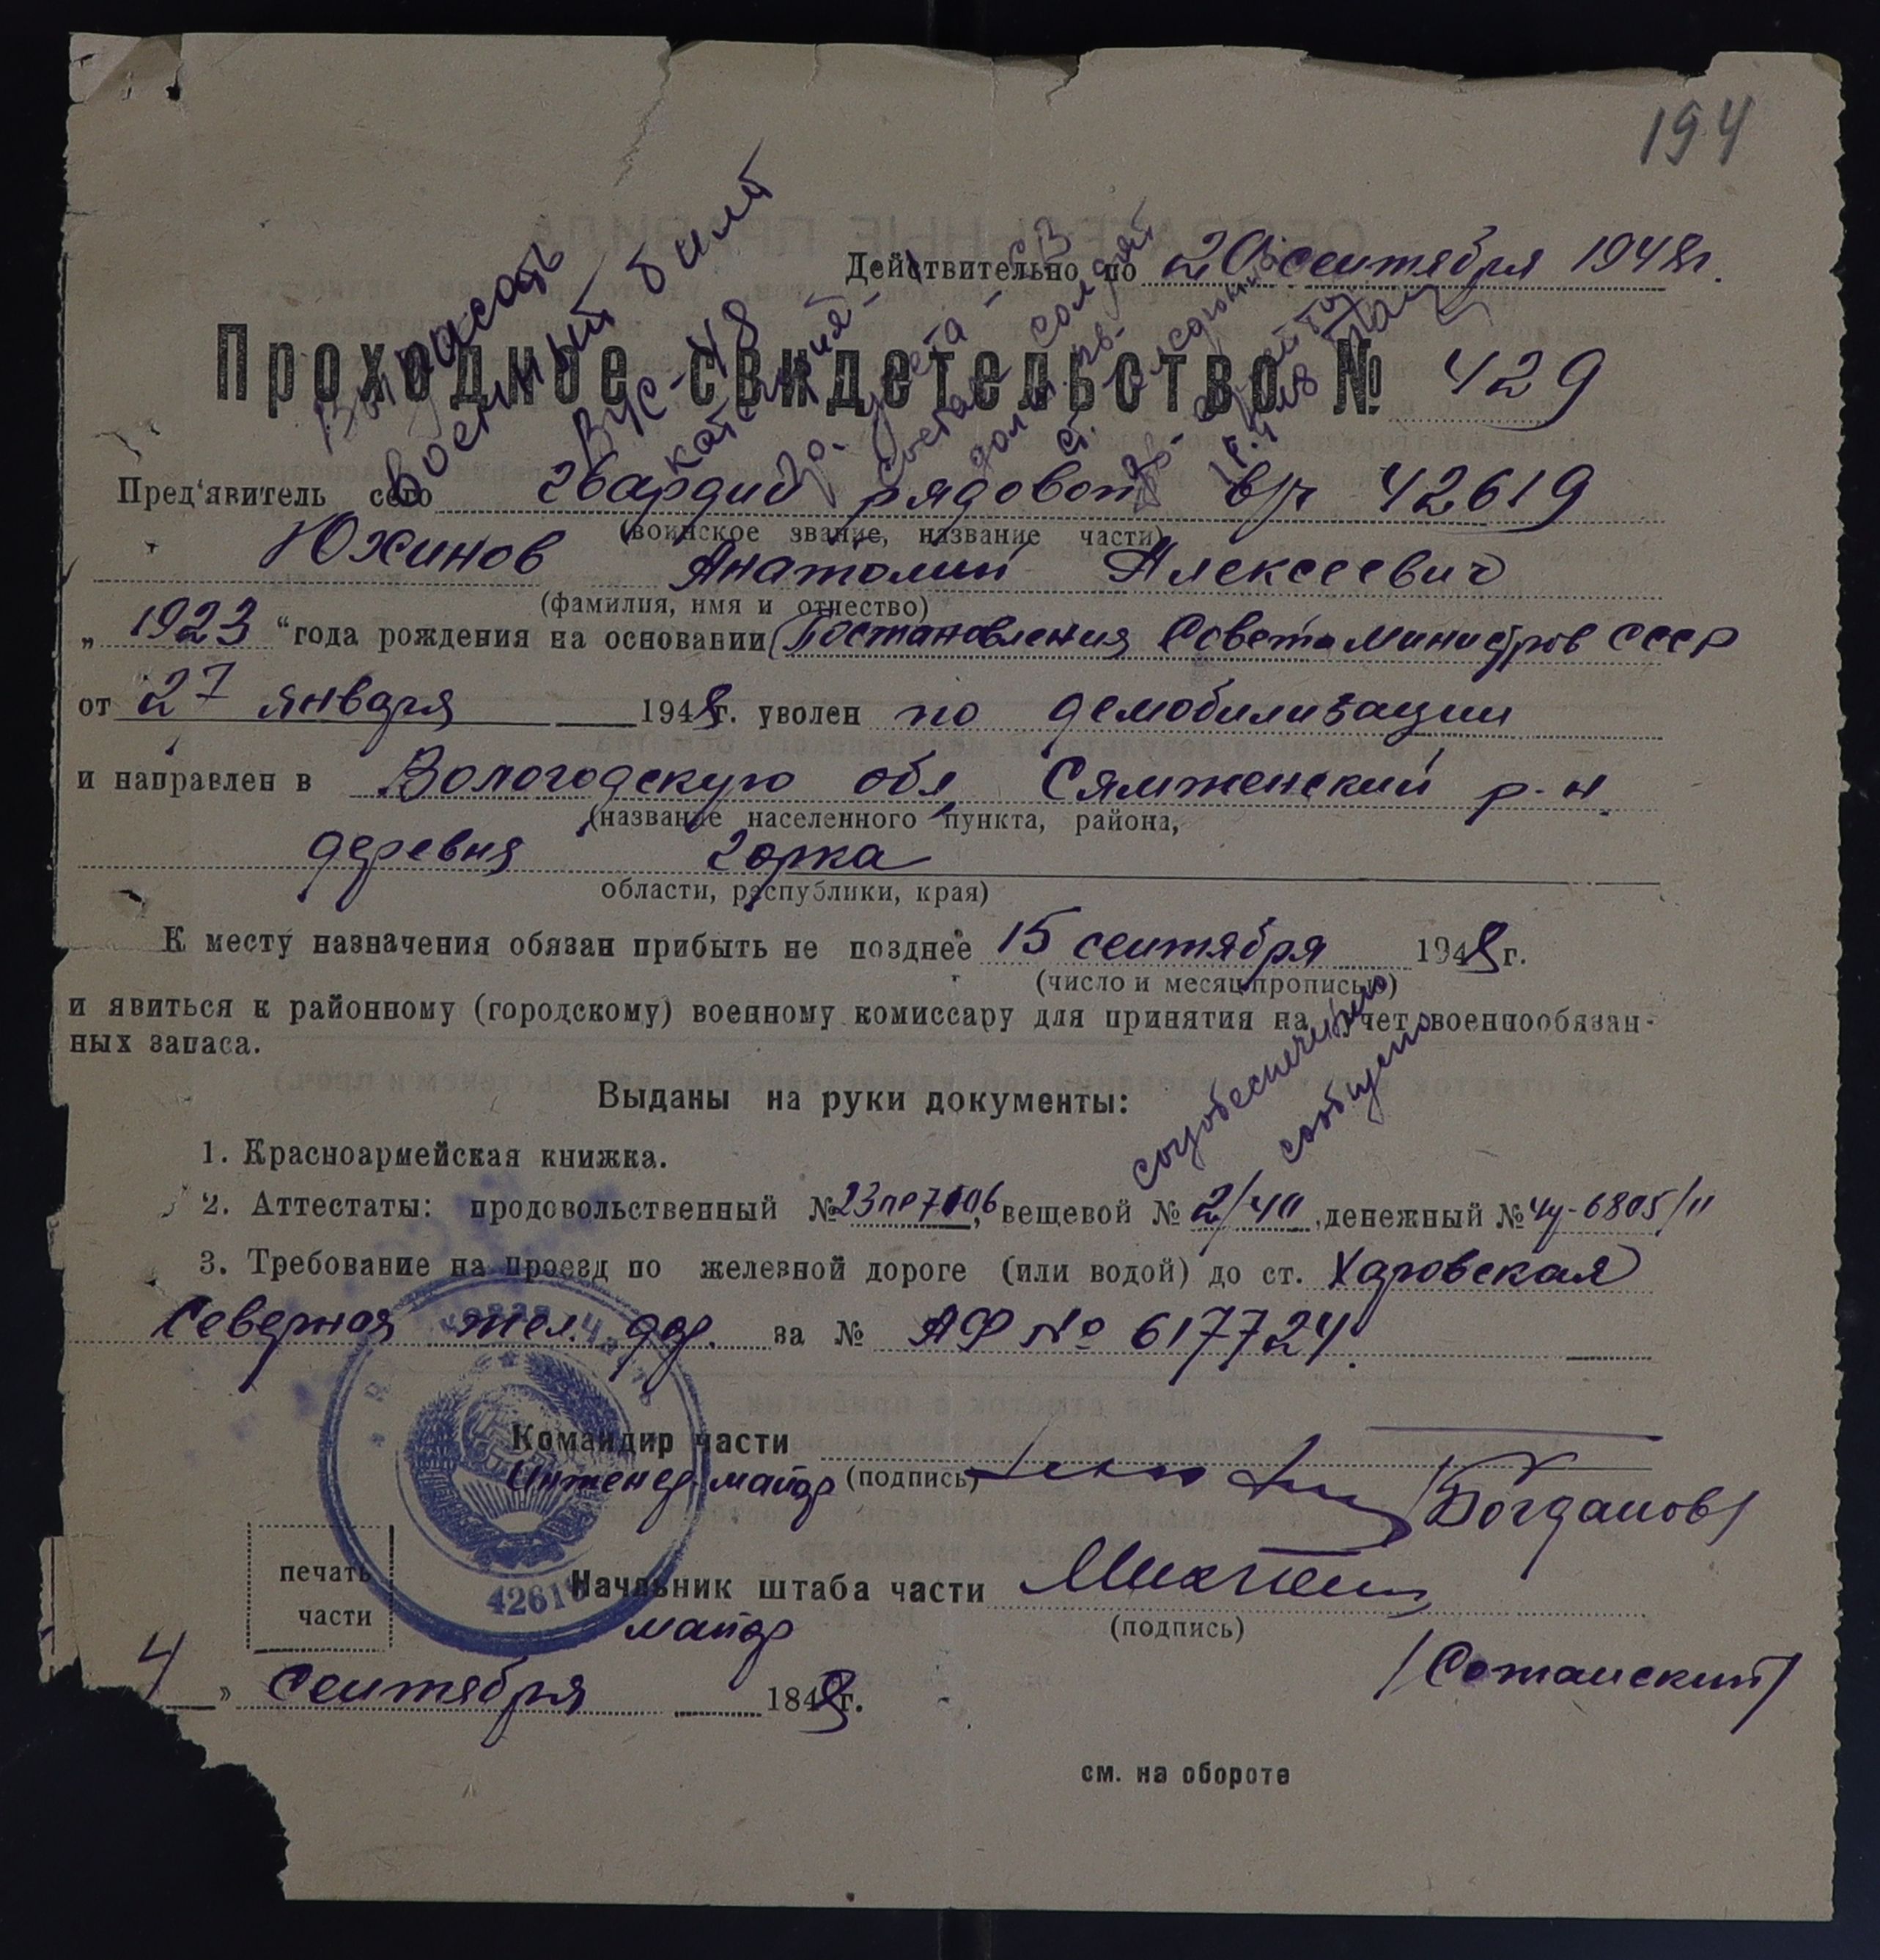 194
Действительно по 20 сентября 1948г.
Проходное свидетельство № 429
Выписать
военный билет
ВУС-48
категория - 1
состав - солдат
Пред'явитель сего гвардии рядовой в/ч 42619
(воинское звание, название части)
Южинов Анатолий Алексеевич
(фамилия, имя и отчество)
„ 1923 “ года рождения на основании Постановления Совета Министров СССР
от 27 января 1948г. уволен по демобилизации
и направлен в Вологодскую обл, Сямженский р-н.
(название населенного пункта, района,
деревня Горка
области, республики, края)
К месту назначения обязан прибыть не позднее 15 сентября 1948г.
(число и месяц прописью)
и явиться к районному (городскому) военному комиссару для принятия на учет военнообязан-
ных запаса.
соцобеспечению
сообщено
Выданы на руки документы:
1. Красноармейская книжка.
2. Аттестаты: продовольственный № вещевой № 2/411, денежный № 44-6805/11
3. Требование на проезд по железной дороге (или водой) до ст. Харовская
Северная жел. дор. за № АФ № 617724.
Командир части
Инженер-майор (подпись) /Богданов/
печать
части
42619
Начальник штаба части
майор (подпись)
/Сотанский/
4 » сентября 1848г.
см. на обороте